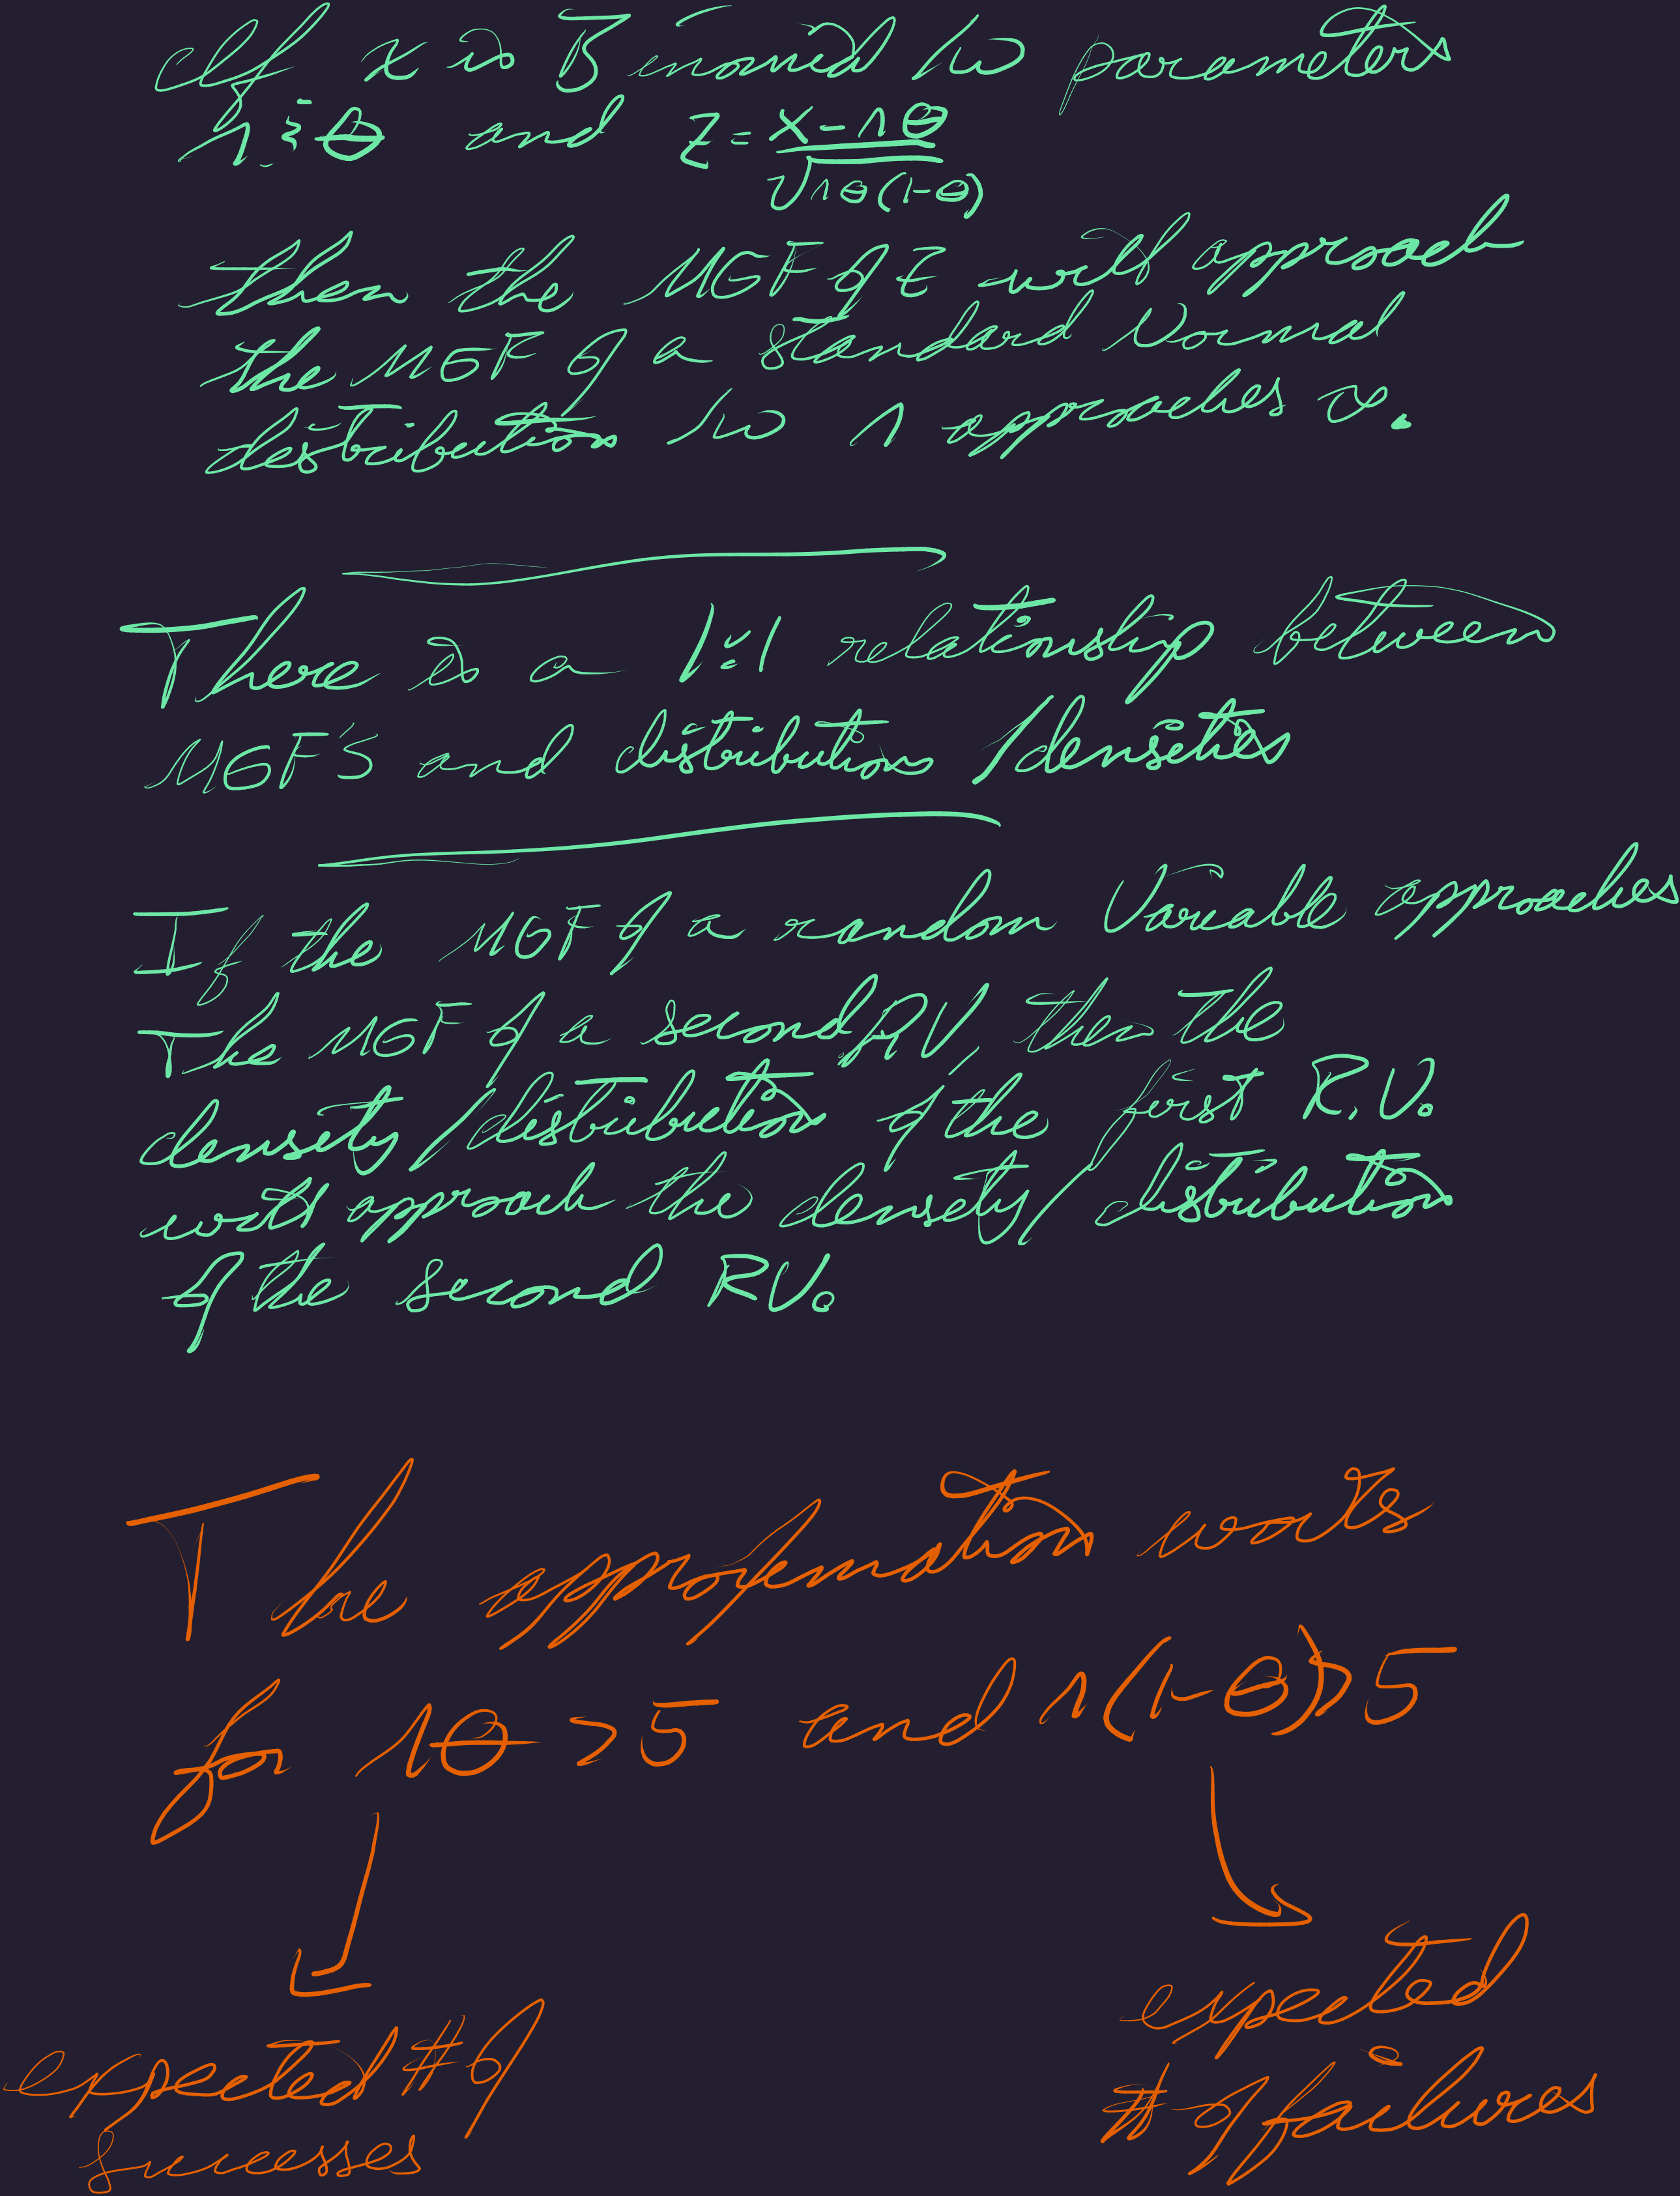 If x is Binomial w parameters
n & θ and z = x - nθ
√nθ(1-θ)
then the MGF of z will approach
the MGF of a standard Normal
distribution as n approaches ∞.
There is a 1:1 relationship between
MGF's and distributions/densities
If the MGF of a random variable approaches
The MGF of a second RV, then the
density/distribution of the first R.V.
will approach the density/distribution
of the second RV.
The approximation works
for nθ > 5 and n(1-θ) > 5
expected # of
successes
expected
# of failures